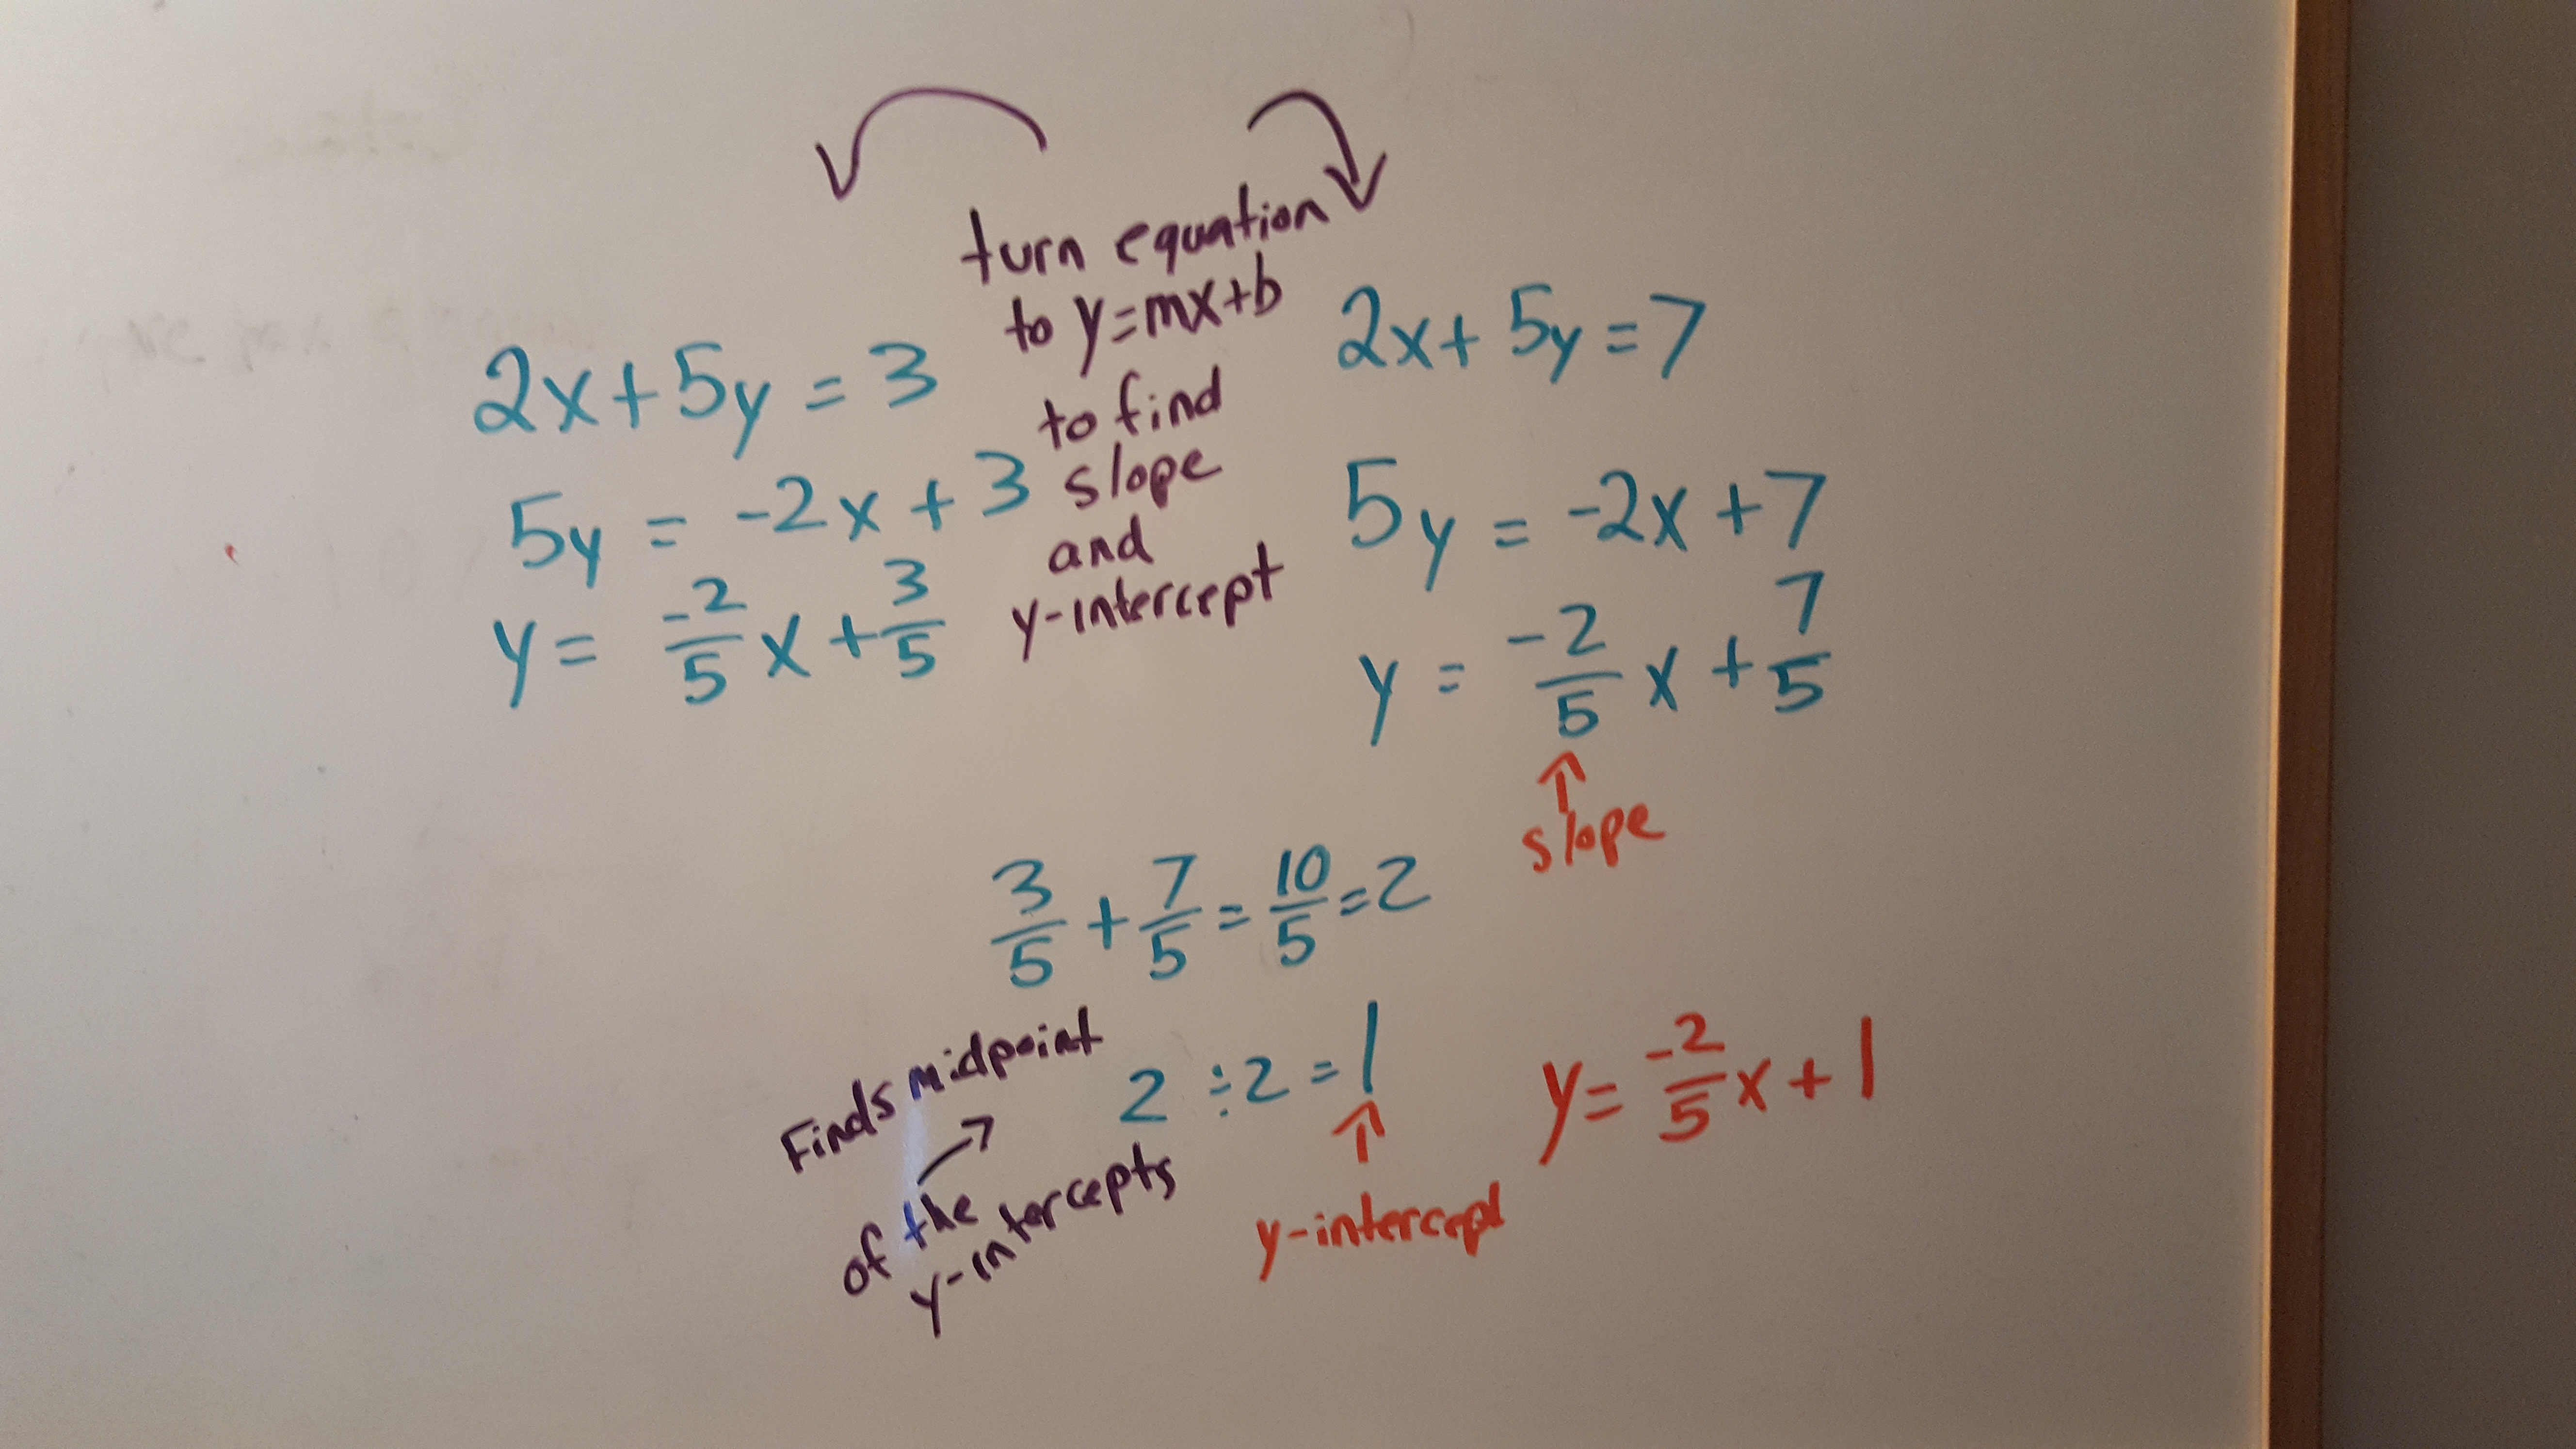 turn equation
to y=mx+b
to find
slope
and
y-intercept
2x+5y=3
5y = -2x+3
y= -2/5 x+3/5
2x+5y=7
5y = -2x+7
y = -2/5 x+7/5
slope
3/5+7/5=10/5=2
Finds midpoint
of the
y-intercepts
2÷2=1
y-intercept
y=-2/5 x+1